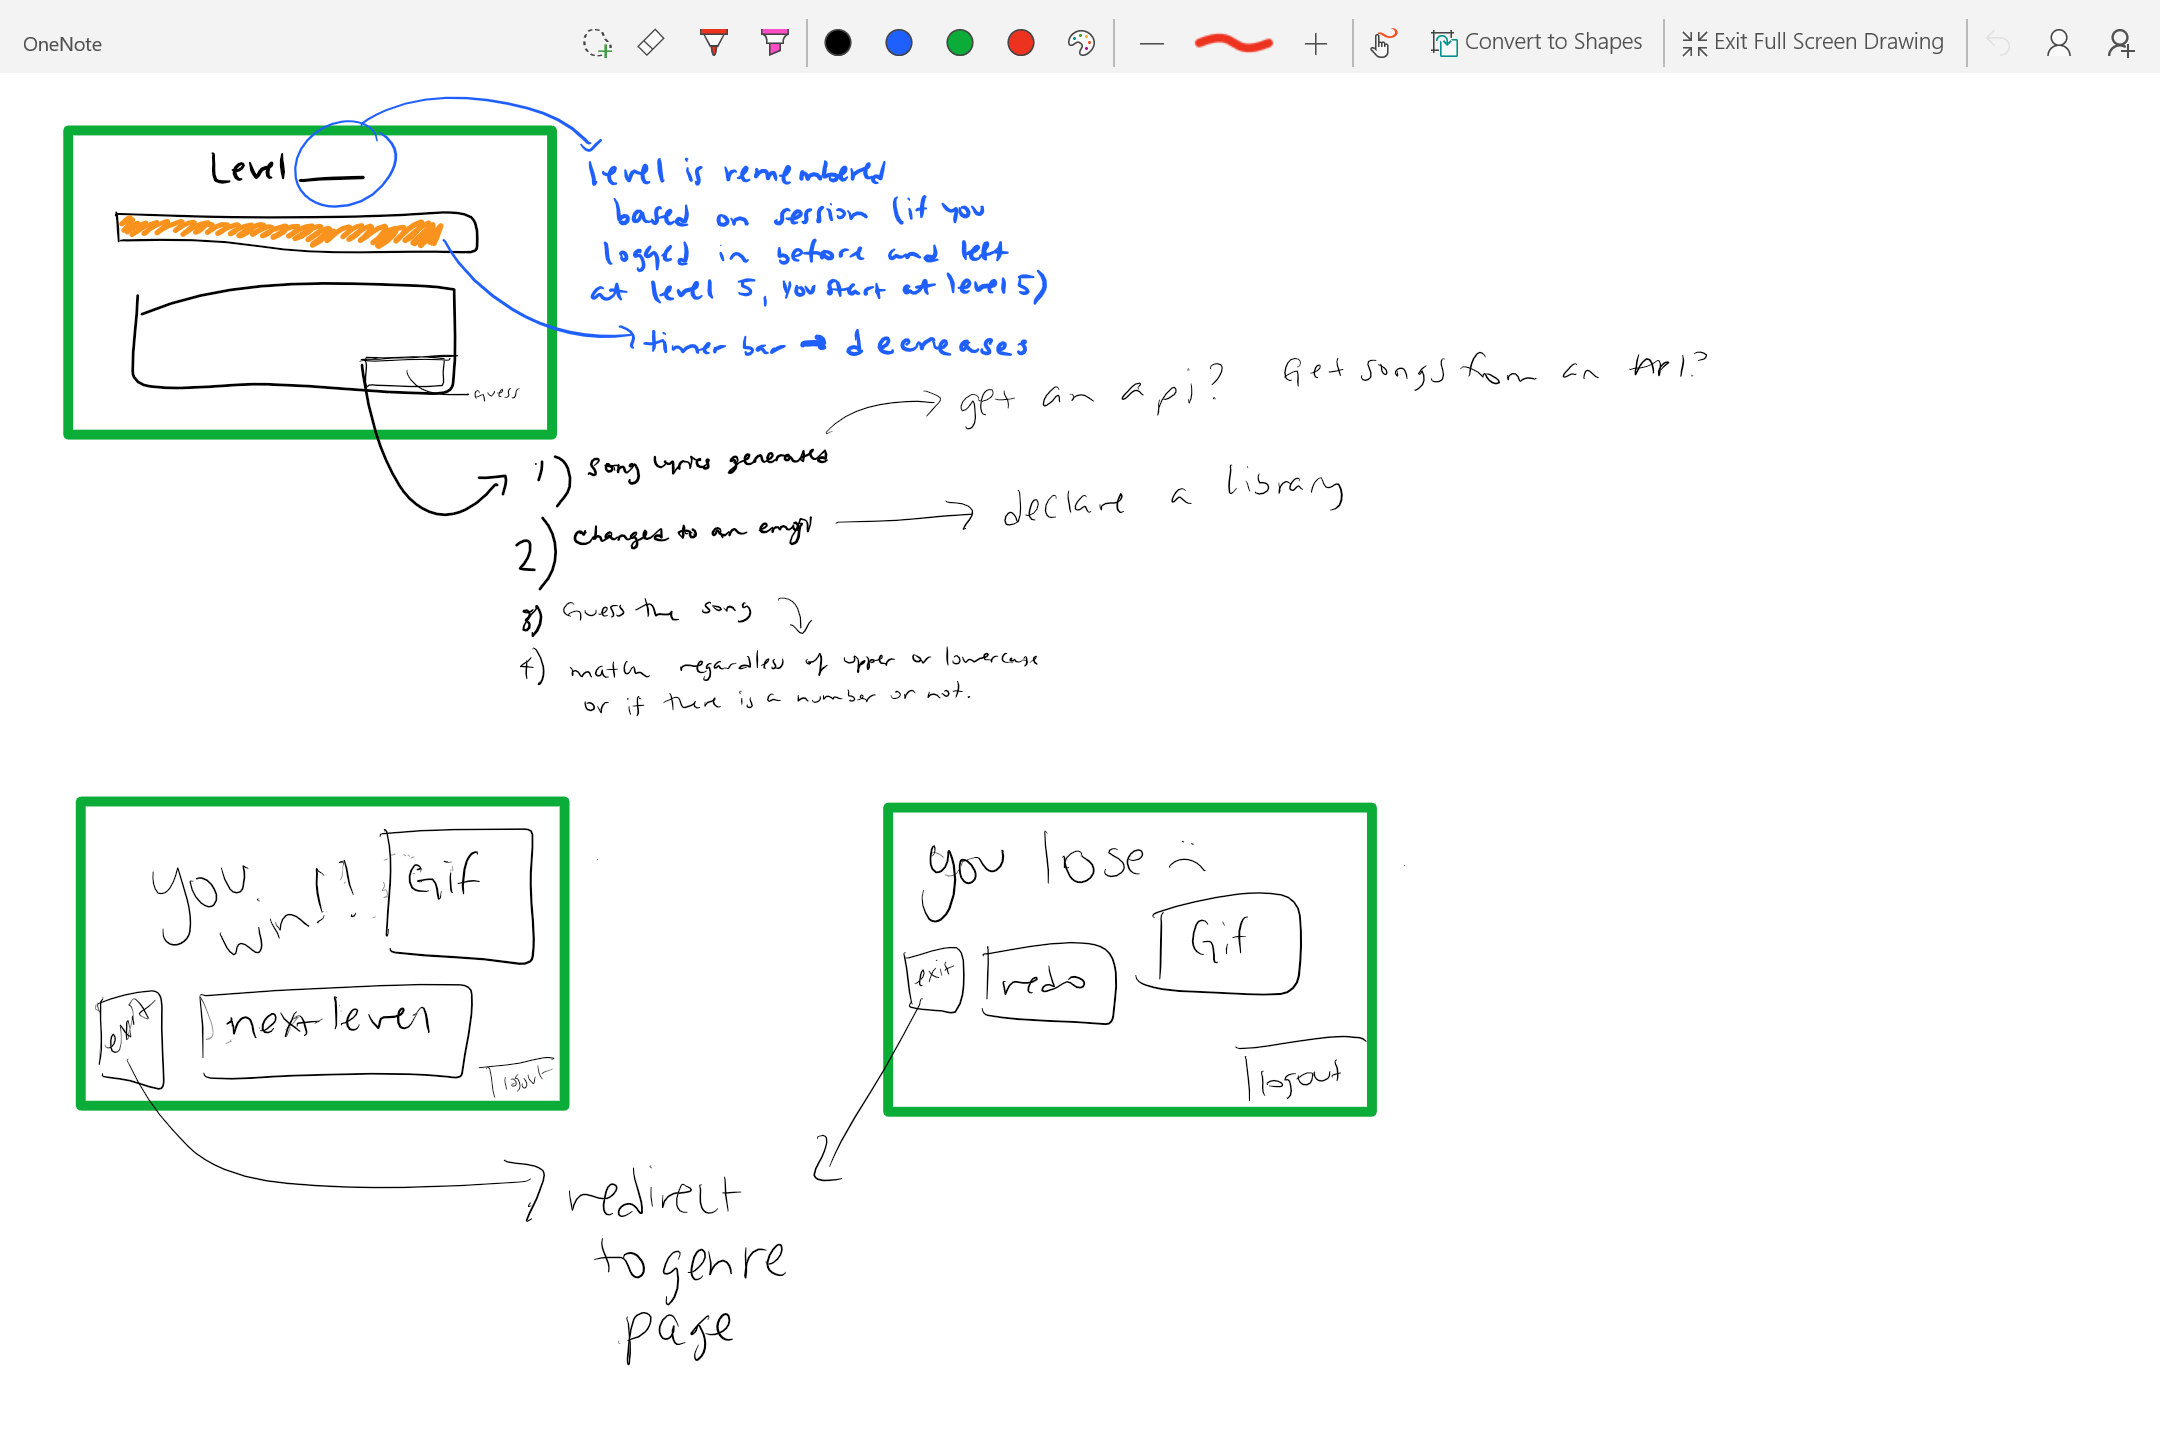 OneNote
Convert to Shapes
Exit Full Screen Drawing
Level
level is remembered
based on session (if you
logged in before and left
at level 5, you start at level 5)
timer bar → decreases
guess
get an api? Get songs from an API?
1) song lyrics generates
declare a library
2) changes to an emoji
3) Guess the song
4) match regardless of upper or lowercase
or if there is a number or not.
you
win!!
Gif
exit
next level
logout
you lose :(
Gif
exit
redo
logout
redirect
to genre
page